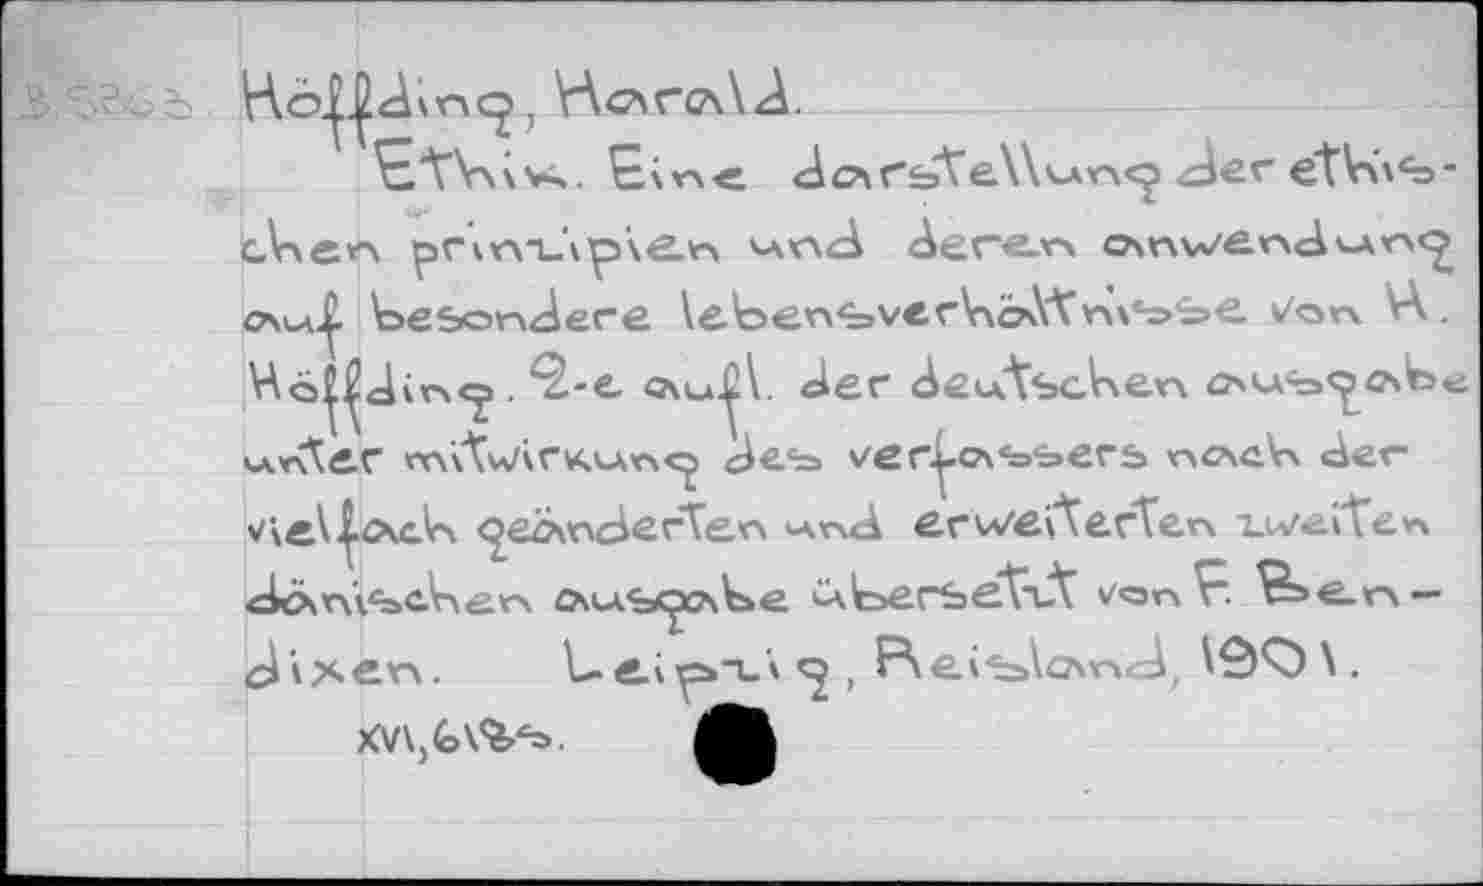 Höffding, Harald.
Ethik. Eine darstellung der ethis-
chen prinzipien und deren anwendung
auf besondere lebensverhältnisse von H.
Höffding. 2-e aufl. der deutschen ausgabe
unter mitwirkung des verfassers nach der
vielfach geänderten und erweiterten zweiten
dänischen ausgabe übersetzt von F. Ben-
dixen. Leipzig, Reisland, 1901.
XVI, 618 s.